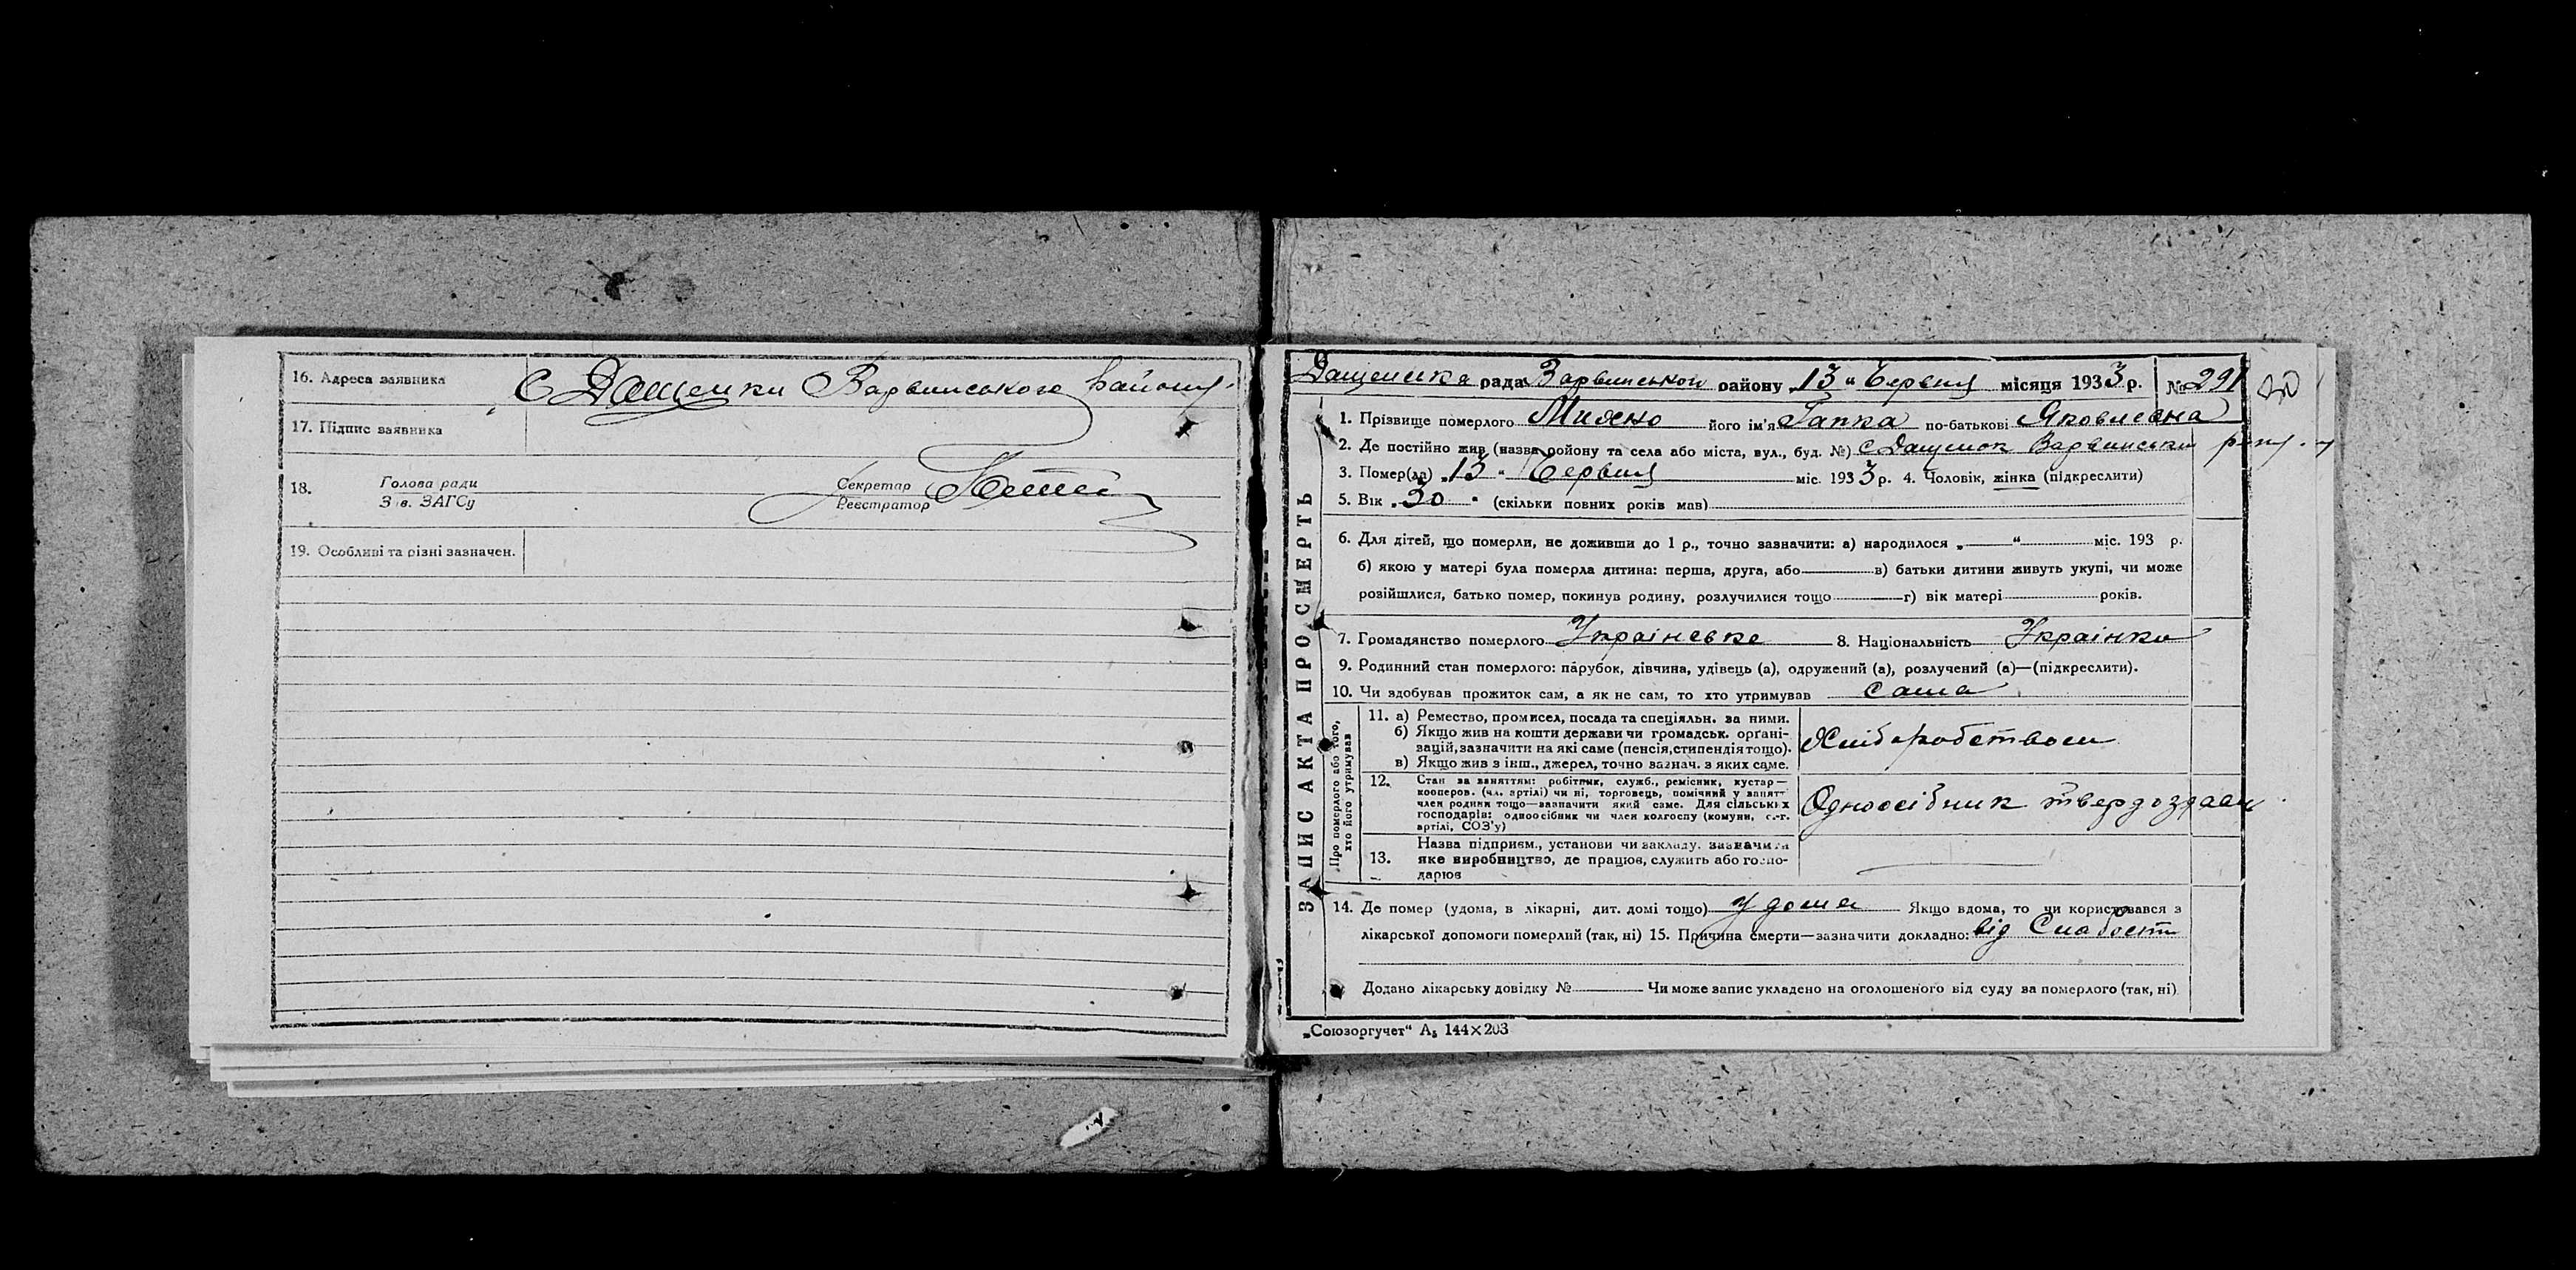 16. Адреса заявника С Дащенки Варвинського району
17. Підпис заявника
18. Голова ради Секретар
Зав. ЗАГСу Реєстратор
19. Особливі та різні зазначен.
ЗАПИС АКТА ПРО СМЕРТЬ
Дащенська рада Варвинського району „13“ Червня місяця 1933 р. № 291
1. Прізвище померлого його ім'я Гапка по-батькові Яковлевна
2. Де постійно жив (назва району та села або міста, вул., буд. №) с Дащенок Варвинськи
3. Помер(ла) „13“ Червня міс. 1933 р. 4. Чоловік, жінка (підкреслити)
5. Вік „30“ (скільки повних років мав)
6. Для дітей, що померли, не доживши до 1 р., точно зазначити: а) народилося „ “ міс. 193 р.
б) якою у матері була померла дитина: перша, друга, або в) батьки дитини живуть укупі, чи може
розійшлися, батько помер, покинув родину, розлучилися тощо г) вік матері років.
7. Громадянство померлого Українське 8. Національність Українка
9. Родинний стан померлого: парубок, дівчина, удівець (а), одружений (а), розлучений (а)—(підкреслити).
10. Чи здобував прожиток сам, а як не сам, то хто утримував сама
Про померлого або того, хто його утримував
11. а) Ремество, промисел, посада та спеціяльн. за ними.
б) Якщо жив на кошти держави чи громадськ. орґані-
зацій, зазначити на які саме (пенсія, стипендія тощо).
в) Якщо жив з інш., джерел, точно зазнач. з яких саме.
Хліборобством
12. Стан за заняттям: робітник, служб., ремісник, кустар—
кооперов. (чл. артілі) чи ні, торговець, помічний у занятт
член родини тощо—зазначити який саме. Для сільських
господарів: одноосібник чи член колгоспу (комуни, с.-г.
артілі, СОЗ'у)
Одноосібник твердоздавч
13. Назва підприєм., установи чи закладу. зазначити
яке виробництво, де працює, служить або госпо-
дарює
14. Де помер (удома, в лікарні, дит. домі тощо) У дома Якщо вдома, то чи користувався з
лікарської допомоги померлий (так, ні) 15. Причина смерти—зазначити докладно: від Слабости
Додано лікарську довідку № Чи може запис укладено на оголошеного від суду за померлого (так, ні)
„Союзоргучет“ А₅ 144×203